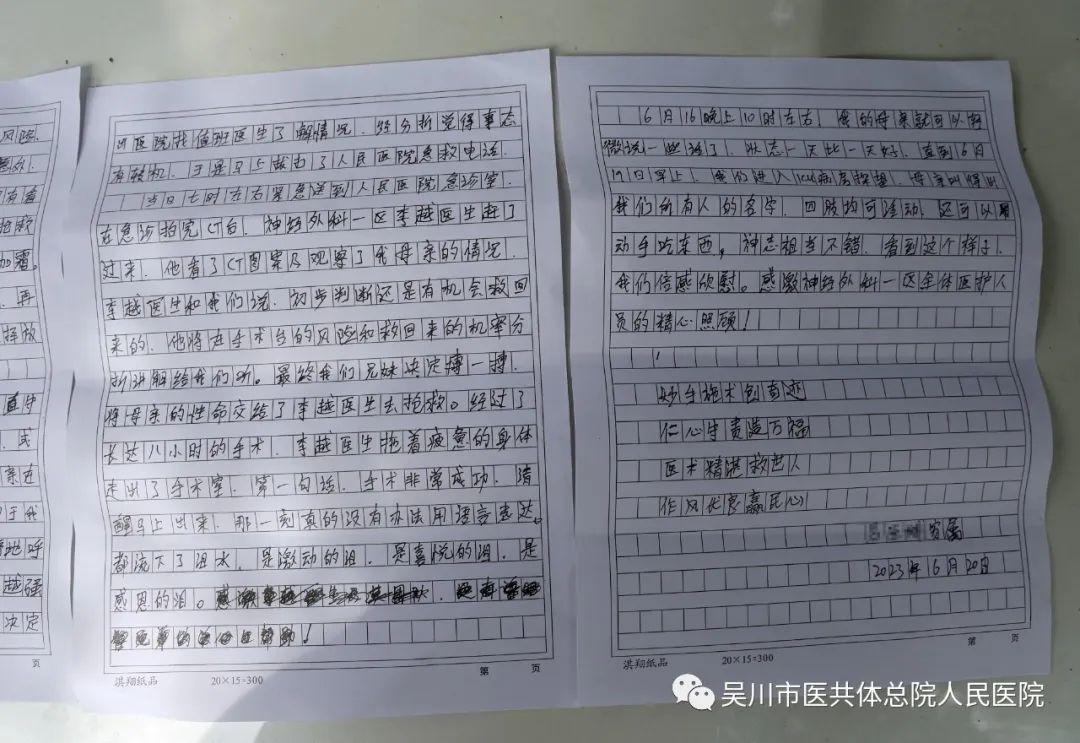 风险
意外
有着
抢救
加霜。
再
择放
直中
或
亲进
于我
地呼
越强
决定
页
出医院找值班医生了解情况.经分析觉得事态
有转机.于是马上拨打了人民医院急救电话.
当日七时左右紧急送到人民医院急诊室.
在急诊拍完CT后.神经外科一区李越医生赶了
过来.他看了CT图案及观察了我母亲的情况.
李越医生和我们说.初步判断还是有机会救回
来的.他将在手术台的风险和救回来的机率分
析讲解给我们听。最终我们兄妹决定搏一搏.
将母亲的性命交给了李越医生去抢救。经过了
长达八小时的手术.李越医生拖着疲惫的身体
走出了手术室.第一句话.手术非常成功.清
醒马上出来.那一刻真的没有办法用语言表达。
都流下了泪水.是激动的泪.是喜悦的泪.是
感恩的泪。
淇翔纸品 20×15=300 第 页
6月16晚上10时左右.我的母亲就可以轻
微说一些话了.状态一天比一天好.直到6月
19日早上.我们进入ICU病房探望.母亲叫得出
我们所有人的名字.四肢均可活动.还可以
动手吃东西。神志相当不错.看到这个样子.
我们倍感欣慰。感激神经外科一区全体医护人
员的精心照顾!
妙手施术创奇迹
仁心守责造万福
医术精湛救世人
作风优良赢民心
家属
2023年6月20日
淇翔纸品 20×15=300 第 页
吴川市医共体总院人民医院